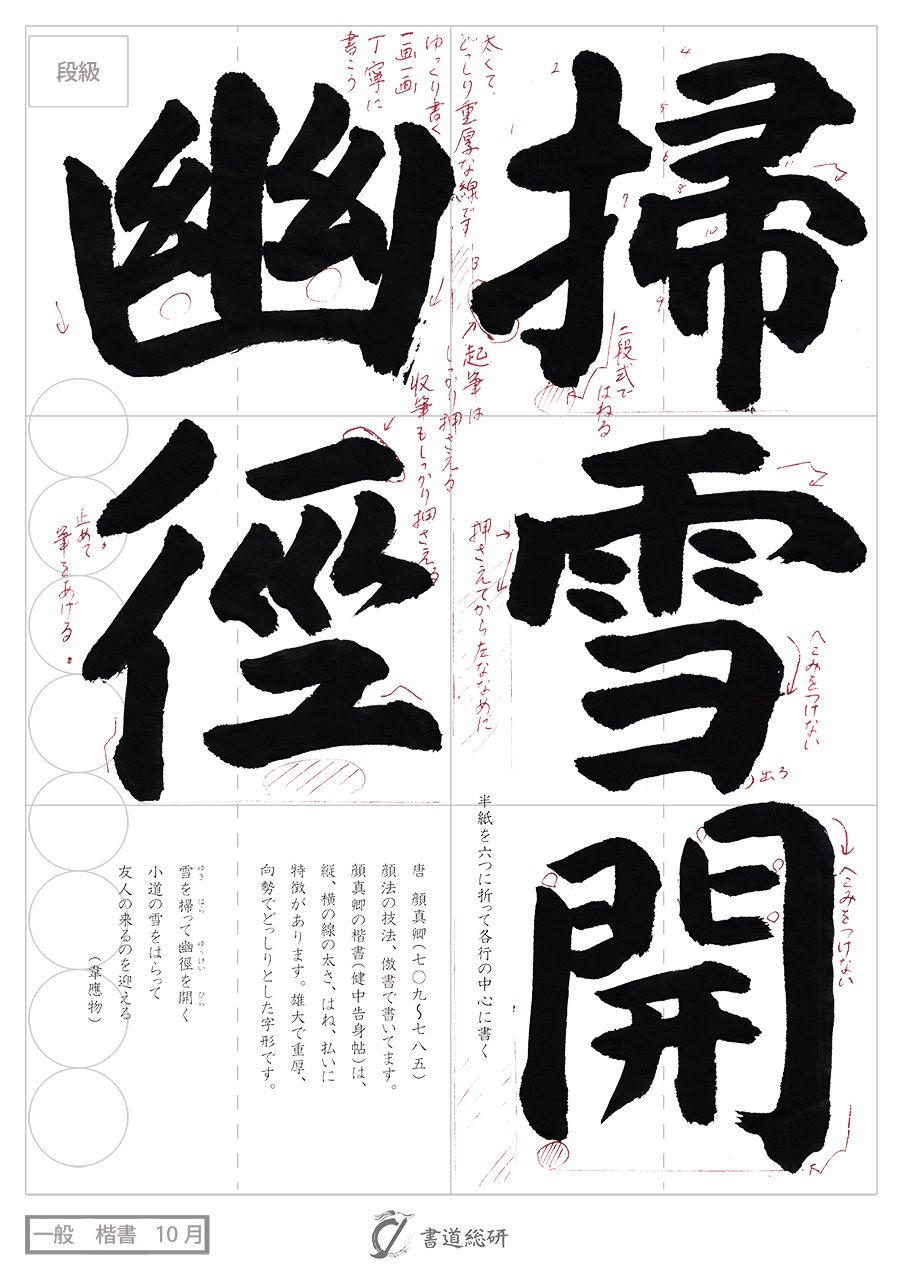 掃雪開
幽徑
段級
太くて、
どっしり重厚な線です
ゆっくり書く
一画一画
丁寧に
書こう
1
2
4
5
6
7
8
9
10
11
二段式で
はねる
起筆は
しっかり押さえる
収筆もしっかり押さえる
押さえてからたななめに
へこみをつけない
出ろ
へこみをつけない
止めて
筆をあげる。
半紙を六つに折って各行の中心に書く
唐 顔真卿(七〇九〜七八五)
顔法の技法、倣書で書いてます。
顔真卿の楷書(健中告身帖)は、
縦、横の線の太さ、はね、払いに
特徴があります。雄大で重厚、
向勢でどっしりとした字形です。
雪を掃って幽徑を開く
ゆき はら ゆうけい ひら
小道の雪をはらって
友人の来るのを迎える
(韋應物)
一般 楷書 10月
書道総研